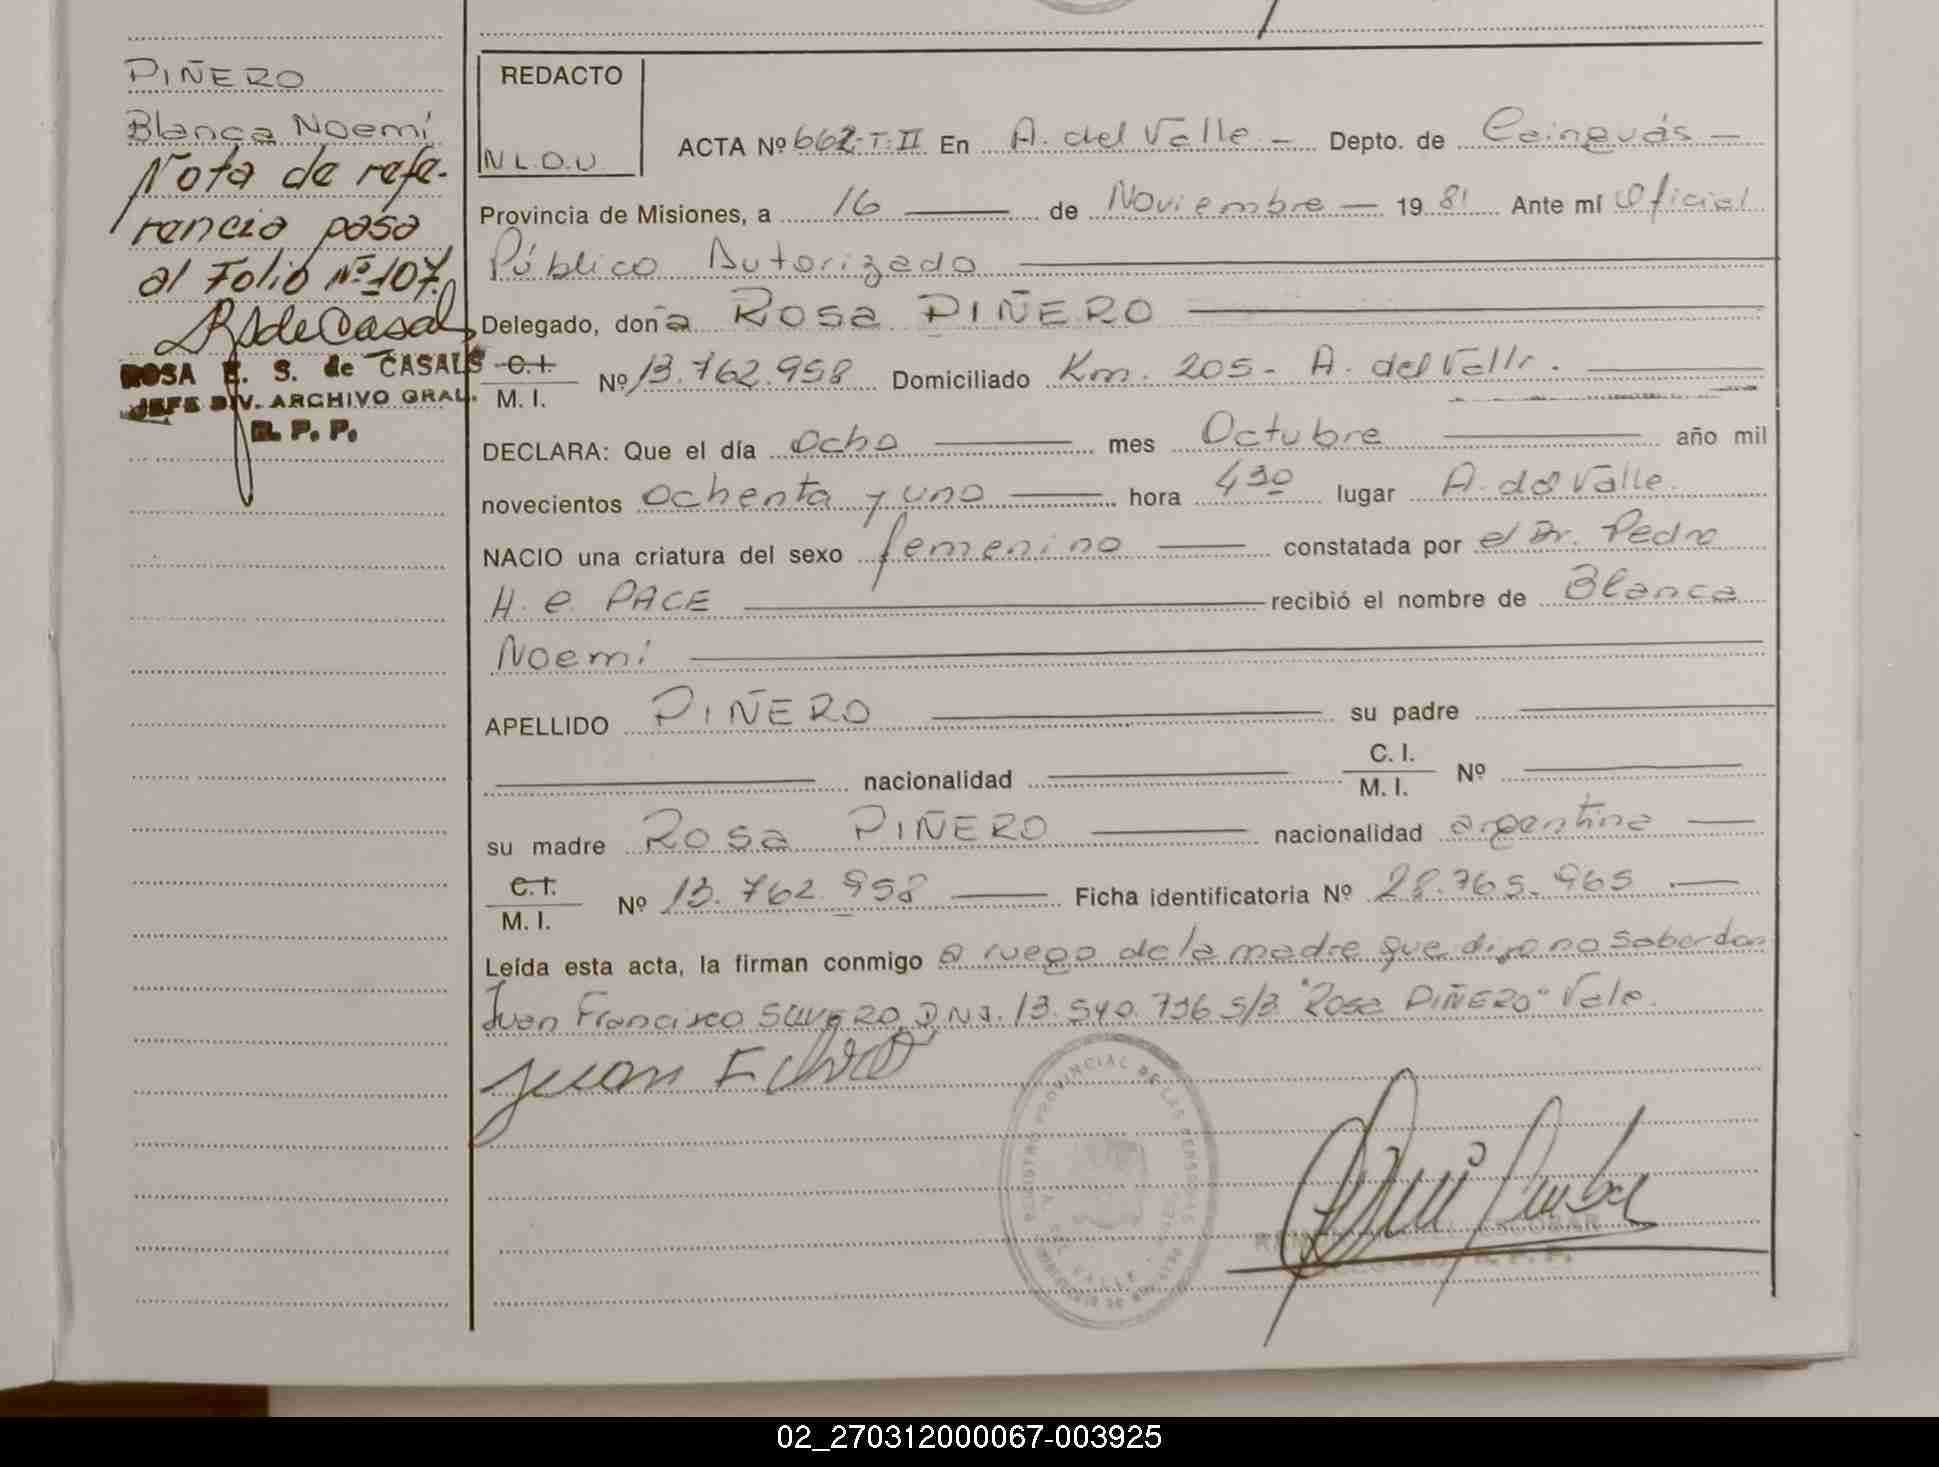 PIÑERO
Blanca Noemí
Nota de refe-
rencia pasa
al Folio Nº 107.
ROSA E. S. de CASALS
JEFE DIV. ARCHIVO GRAL.
R. P. P.
REDACTO
N L.O.U.
ACTA Nº 662-T.II En A. del Valle - Depto. de Cainguás -
Provincia de Misiones, a 16 de Noviembre - 19 81 Ante mí Oficial
Público Autorizado
Delegado, doña ROSA PIÑERO
C.I. M. I. Nº 13.762.958 Domiciliado Km. 205 - A. del Valle.
DECLARA: Que el día ocho mes Octubre año mil
novecientos ochenta y uno hora 4 30 lugar A. del Valle.
NACIO una criatura del sexo femenino constatada por el Dr. Pedro
H. C. PACE recibió el nombre de Blanca
Noemí
APELLIDO PIÑERO su padre
nacionalidad C. I. M. I. Nº
su madre ROSA PIÑERO nacionalidad argentina
C.I. M. I. Nº 13.762.958 Ficha identificatoria Nº 28.765.965
Leída esta acta, la firman conmigo a ruego de la madre que dijo no saber don
Juan Francisco D.N.I. 13.540.736 S/B "Rosa PIÑERO" Vale.
Juan F
REGISTRO PROVINCIAL DE LAS PERSONAS
DEL VALLE
ESCOBAR
R. P. P.
02_270312000067-003925